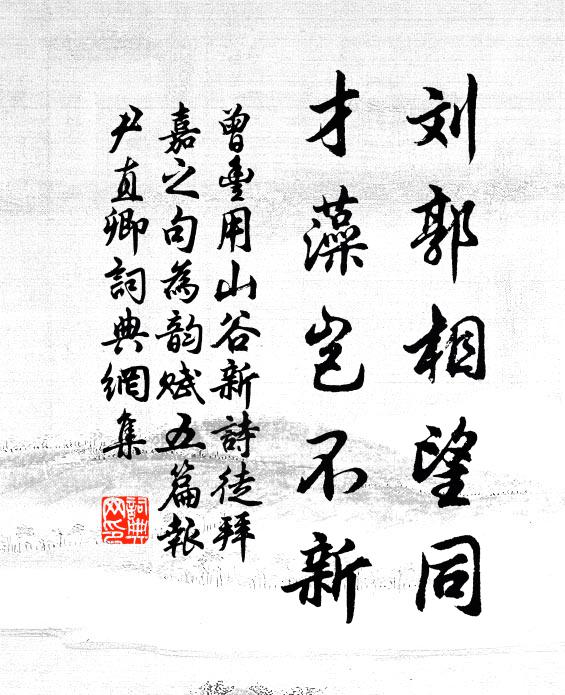 刘郭相望同
才藻岂不新
曾豊用山谷新詩徒拜
嘉之句為韵赋五篇報
尹直卿詞典網集
詞典